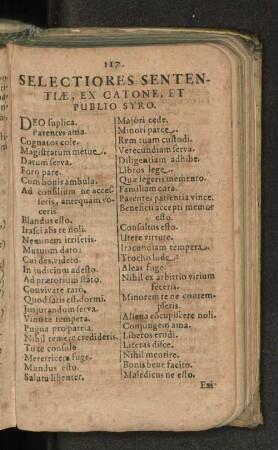 117.
SELECTIORES SENTEN-
TIÆ, EX CATONE, ET
PUBLIO SYRO.
DEO suplica.
Parentes ama.
Cognatos cole.
Magistratum metue.
Datum serva.
Foro pare.
Cum bonis ambula.
Ad consilium ne acces-
seris, antequam vo-
ceris.
Blandus esto.
Irasci abs te noli.
Neminem irriseris.
Mutuum dato;
Cui des, videto.
In judicium adesto.
Ad prætorium stato.
Convivare raro.
Quod satis est, dormi.
Jusjurandum serva.
Vino te tempera.
Pugna pro patria.
Nihil temere credideris.
Tu te consule
Meretricem fuge.
Mundus esto.
Saluta libenter.
Majori cede.
Minori parce.
Rem tuam custodi.
Verecundiam serva.
Diligentiam adhibe.
Libros lege.
Quæ legeris memento.
Familiam cura.
Parentes patientia vince.
Beneficii accepti memor
esto.
Consultus esto.
Utere virtute.
Iracundiam tempera.
Trocho lude.
Aleas fuge.
Nihil ex arbitrio virium
feceris.
Minorem te ne contem-
pseris.
Aliena cōcupiscere noli.
Conjungem ama.
Liberos erudi.
Literas disce.
Nihil mentire.
Bonis bene facito.
Maledicus ne esto.
Exi-